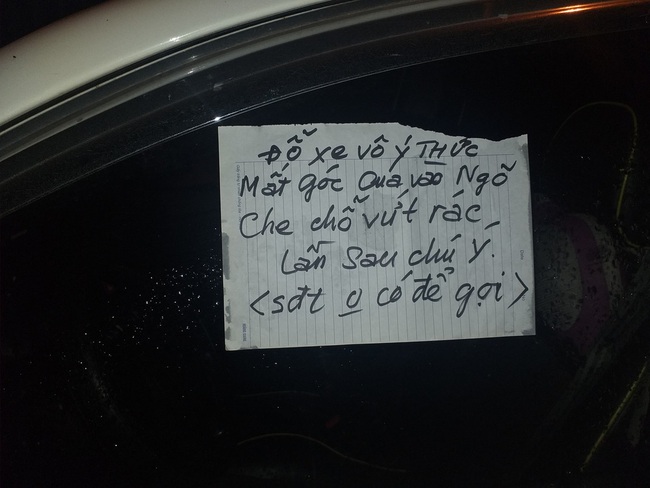 Đỗ xe vô ý THỨC
Mất góc Quá vào Ngõ
Che chỗ vứt rác
Lần sau chú ý.
<sđt 0 có để gọi>